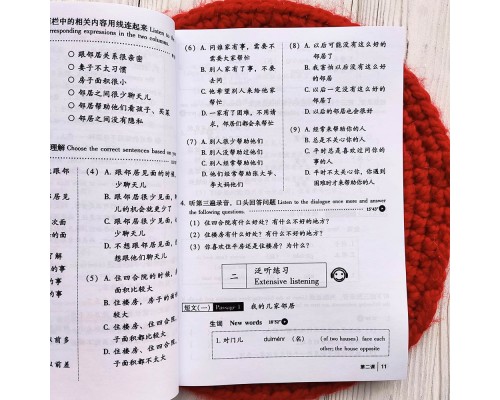 栏中的相关内容用线连起来 Listen to the
rresponding expressions in the two columns.
○ 跟邻居关系很亲密
○ 妻子不太习惯
○ 房子面积很小
○ 邻居之间很少聊天儿
○ 邻居帮助他们看孩子、买菜
○ 邻居之间没有隐私
理解 Choose the correct sentences based on
跟邻
(4) A. 邻居见面的时候
少聊天儿
B. 跟邻居很少见面,
儿的机会就更少了
次面
C. 跟邻居很少见面,
的面
少聊天儿
D. 不想跟邻居见面,
想跟他们聊天儿
了解
的事
(5) A. 住四合院的时候,
的事
面积比较大
B. 住楼房,房子的面
较大
前多
C. 住楼房,住四合院
子面积都比较大
前差
D. 住楼房、住四合院
子面积都不太大
(6) A. 问谁家有事,需要不
需要大家帮忙
B. 别人家有了事,不要
去问
C. 他希望别人来给他家
帮忙
D. 一家有了困难,不用请
求,邻居们都会来帮忙
(7) A. 别人很少帮助他们
B. 别人没帮助过他们
C. 别人经常帮助他们
D. 他们经常帮助张大爷、
李大妈他们
(8) A. 以后可能没有这么好的
邻居了
B. 我害怕以后没有这么好
的邻居
C. 以后一定没有这么好的
邻居了
D. 以后的邻居也会很好
(9) A. 经常来帮助你的人
B. 总是不关心你的人
C. 平时总是喜欢过问你的
事的人
D. 平时不太关心你、你遇到
困难时才来帮助你的人
4. 听第三遍录音,口头回答问题 Listen to the dialogue once more and answer
the following questions. 15'43"
(1) 住四合院有什么好处?有什么不好的地方?
(2) 住楼房有什么好处?有什么不好的地方?
(3) 你喜欢住平房还是住楼房?为什么?
二 泛听练习
Extensive listening
短文(一) Passage 1 我的几家邻居
生词 New words 18'52"
1. 对门儿 duìménr (名) (of two houses) face each
other; the house opposite
第二课 11